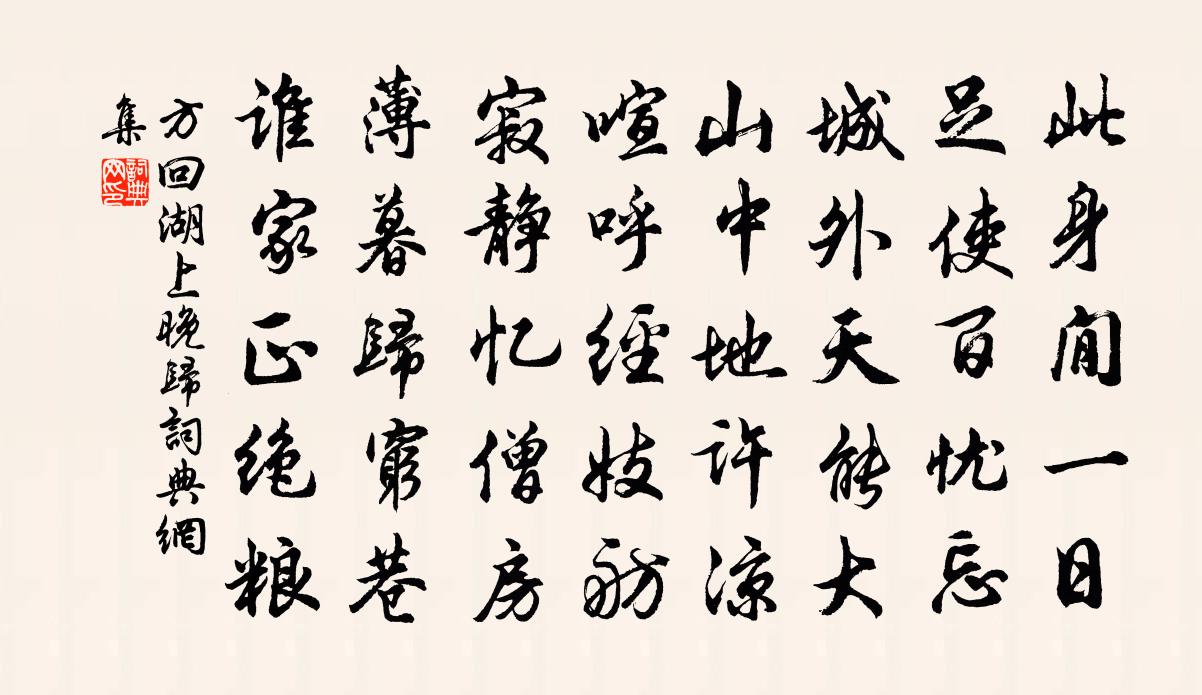 此身闲一日
足使百忧忘
城外天能大
山中地许凉
喧呼经妓舫
寂静忆僧房
薄暮歸窮巷
谁家正绝粮
方回湖上晚歸詞典網
集
詞典網印